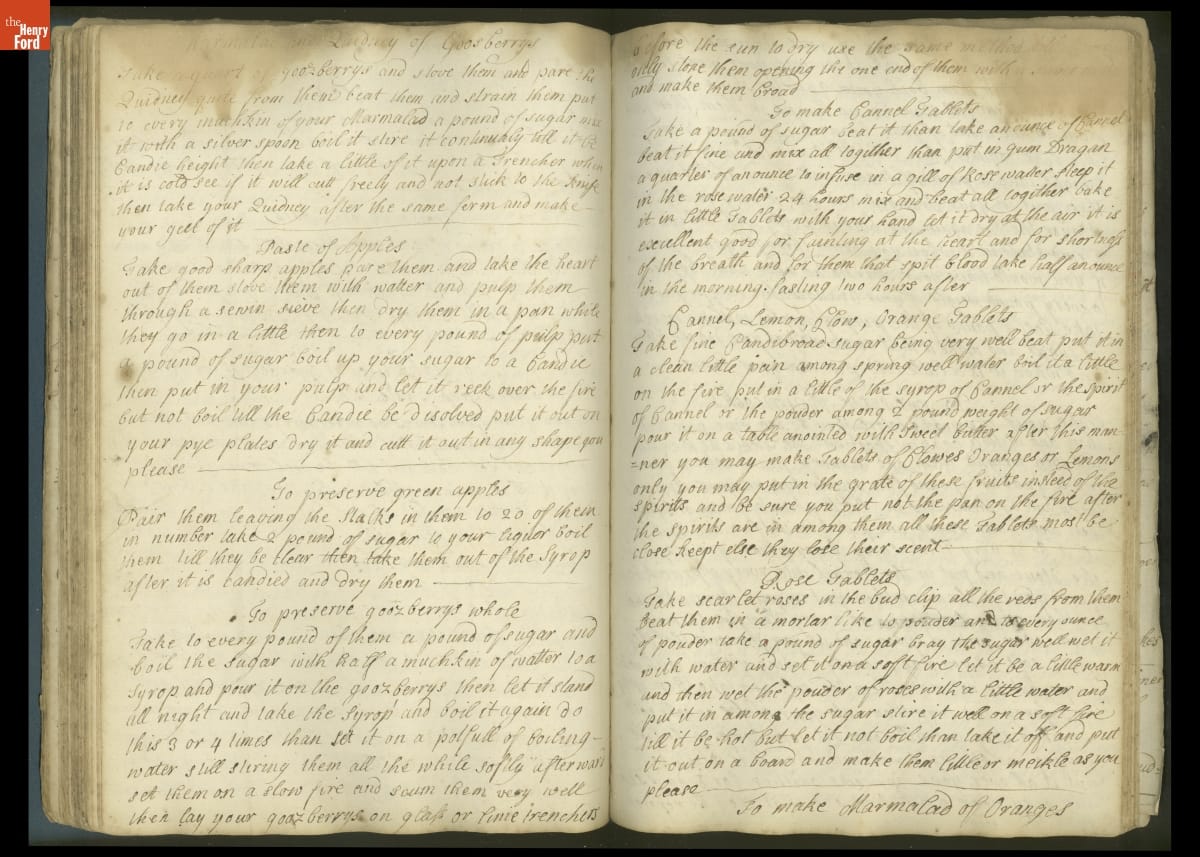 the
Henry
Ford
Marmalad and Quidney of Goosberrys
Take a quart of goozberrys and stove them and pare the
Quidney quite from them beat them and strain them put
to every muchkin of your Marmalad a pound of sugar mix
it with a silver spoon boil it stire it continualy till it be
Candie height then take a little of it upon a Trencher when
it is cold see if it will cutt freely and not stick to the knife
then take your Quidney after the same form and make
your geet of it
Paste of Apples
Take good sharp apples pare them and take the heart
out of them stove them with watter and pulp them
through a sewin sieve then dry them in a pan while
they go in a little then to every pound of pulp put
a pound of sugar boil up your sugar to a Candie
then put in your pulp and let it reek over the fire
but not boil till the Candie be disolved put it out on
your pye plates dry it and cutt it out in any shape you
please
To preserve green apples
Pair them leaving the stalks in them to 20 of them
in number take 2 pound of sugar to your liquor boil
them till they be clear then take them out of the syrop
after it is candied and dry them
To preserve goozberrys whole
Take to every pound of them a pound of sugar and
boil the sugar with half a muchkin of watter to a
syrop and pour it on the goozberrys then let it stand
all night and take the syrop and boil it again do
this 3 or 4 times than set it on a potfull of boiling-
water still stiring them all the while softly afterward
set them on a slow fire and scum them very well
then lay your goozberrys on glass or time trenchers
before the sun to dry use the same method
only stone them opening the one end of them with a
and make them broad
To make Cannel Tablets
Take a pound of sugar beat it than take anounce of Cannel
beat it fine and mix all togither than put in gum Dragan
a quarter of anounce to infuse in a gill of Rose watter steep it
in the rose water 24 hours mix and beat all togither bake
it in little Tablets with your hand let it dry at the air it is
excellent good for fainting at the heart and for shortness
of the breath and for them that spit blood take half anounce
in the morning. fasting two hours after
Cannel, Lemon, Clow, Orange Tablets
Take fine Candibroad sugar being very well beat put it in
a clean little pain among spring well water boil it a little
on the fire put in a little of the syrop of Cannel or the spirit
of Cannel or the pouder among 2 pound weight of sugar
pour it on a table anointed with sweet butter after this man-
=ner you may make Tablets of Clowes Oranges or Lemons
only you may put in the grate of these fruits insteed of the
spirits and be sure you put not the pan on the fire after
the spirits are in among them all these Tablets most be
close keept else they lose their scent
Rose Tablets
Take scarlet roses in the bud clip all the reds from them
beat them in a mortar like to pouder and to every ounce
of pouder take a pound of sugar bray the sugar well wet it
with water and set it on a soft fire let it be a little warm
and then wet the pouder of roses with a little water and
put it in among the sugar stire it well on a soft fire
till it be hot but let it not boil than take it off and put
it out on a board and make them little or meikle as you
please
To make Marmalad of Oranges